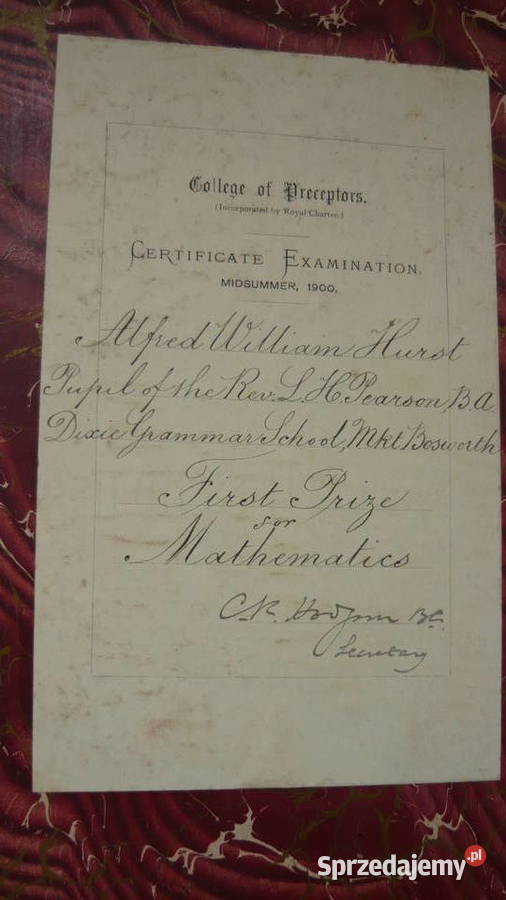 College of Preceptors.
(Incorporated by Royal Charter.)
CERTIFICATE EXAMINATION,
MIDSUMMER, 1900,
Alfred William Hurst
Pupil of the Rev. L. H. Pearson, B.A.
Dixie Grammar School, Mkt Bosworth
First Prize
for
Mathematics
C.R. Hodgson B.A.
Secretary
Sprzedajemy.pl